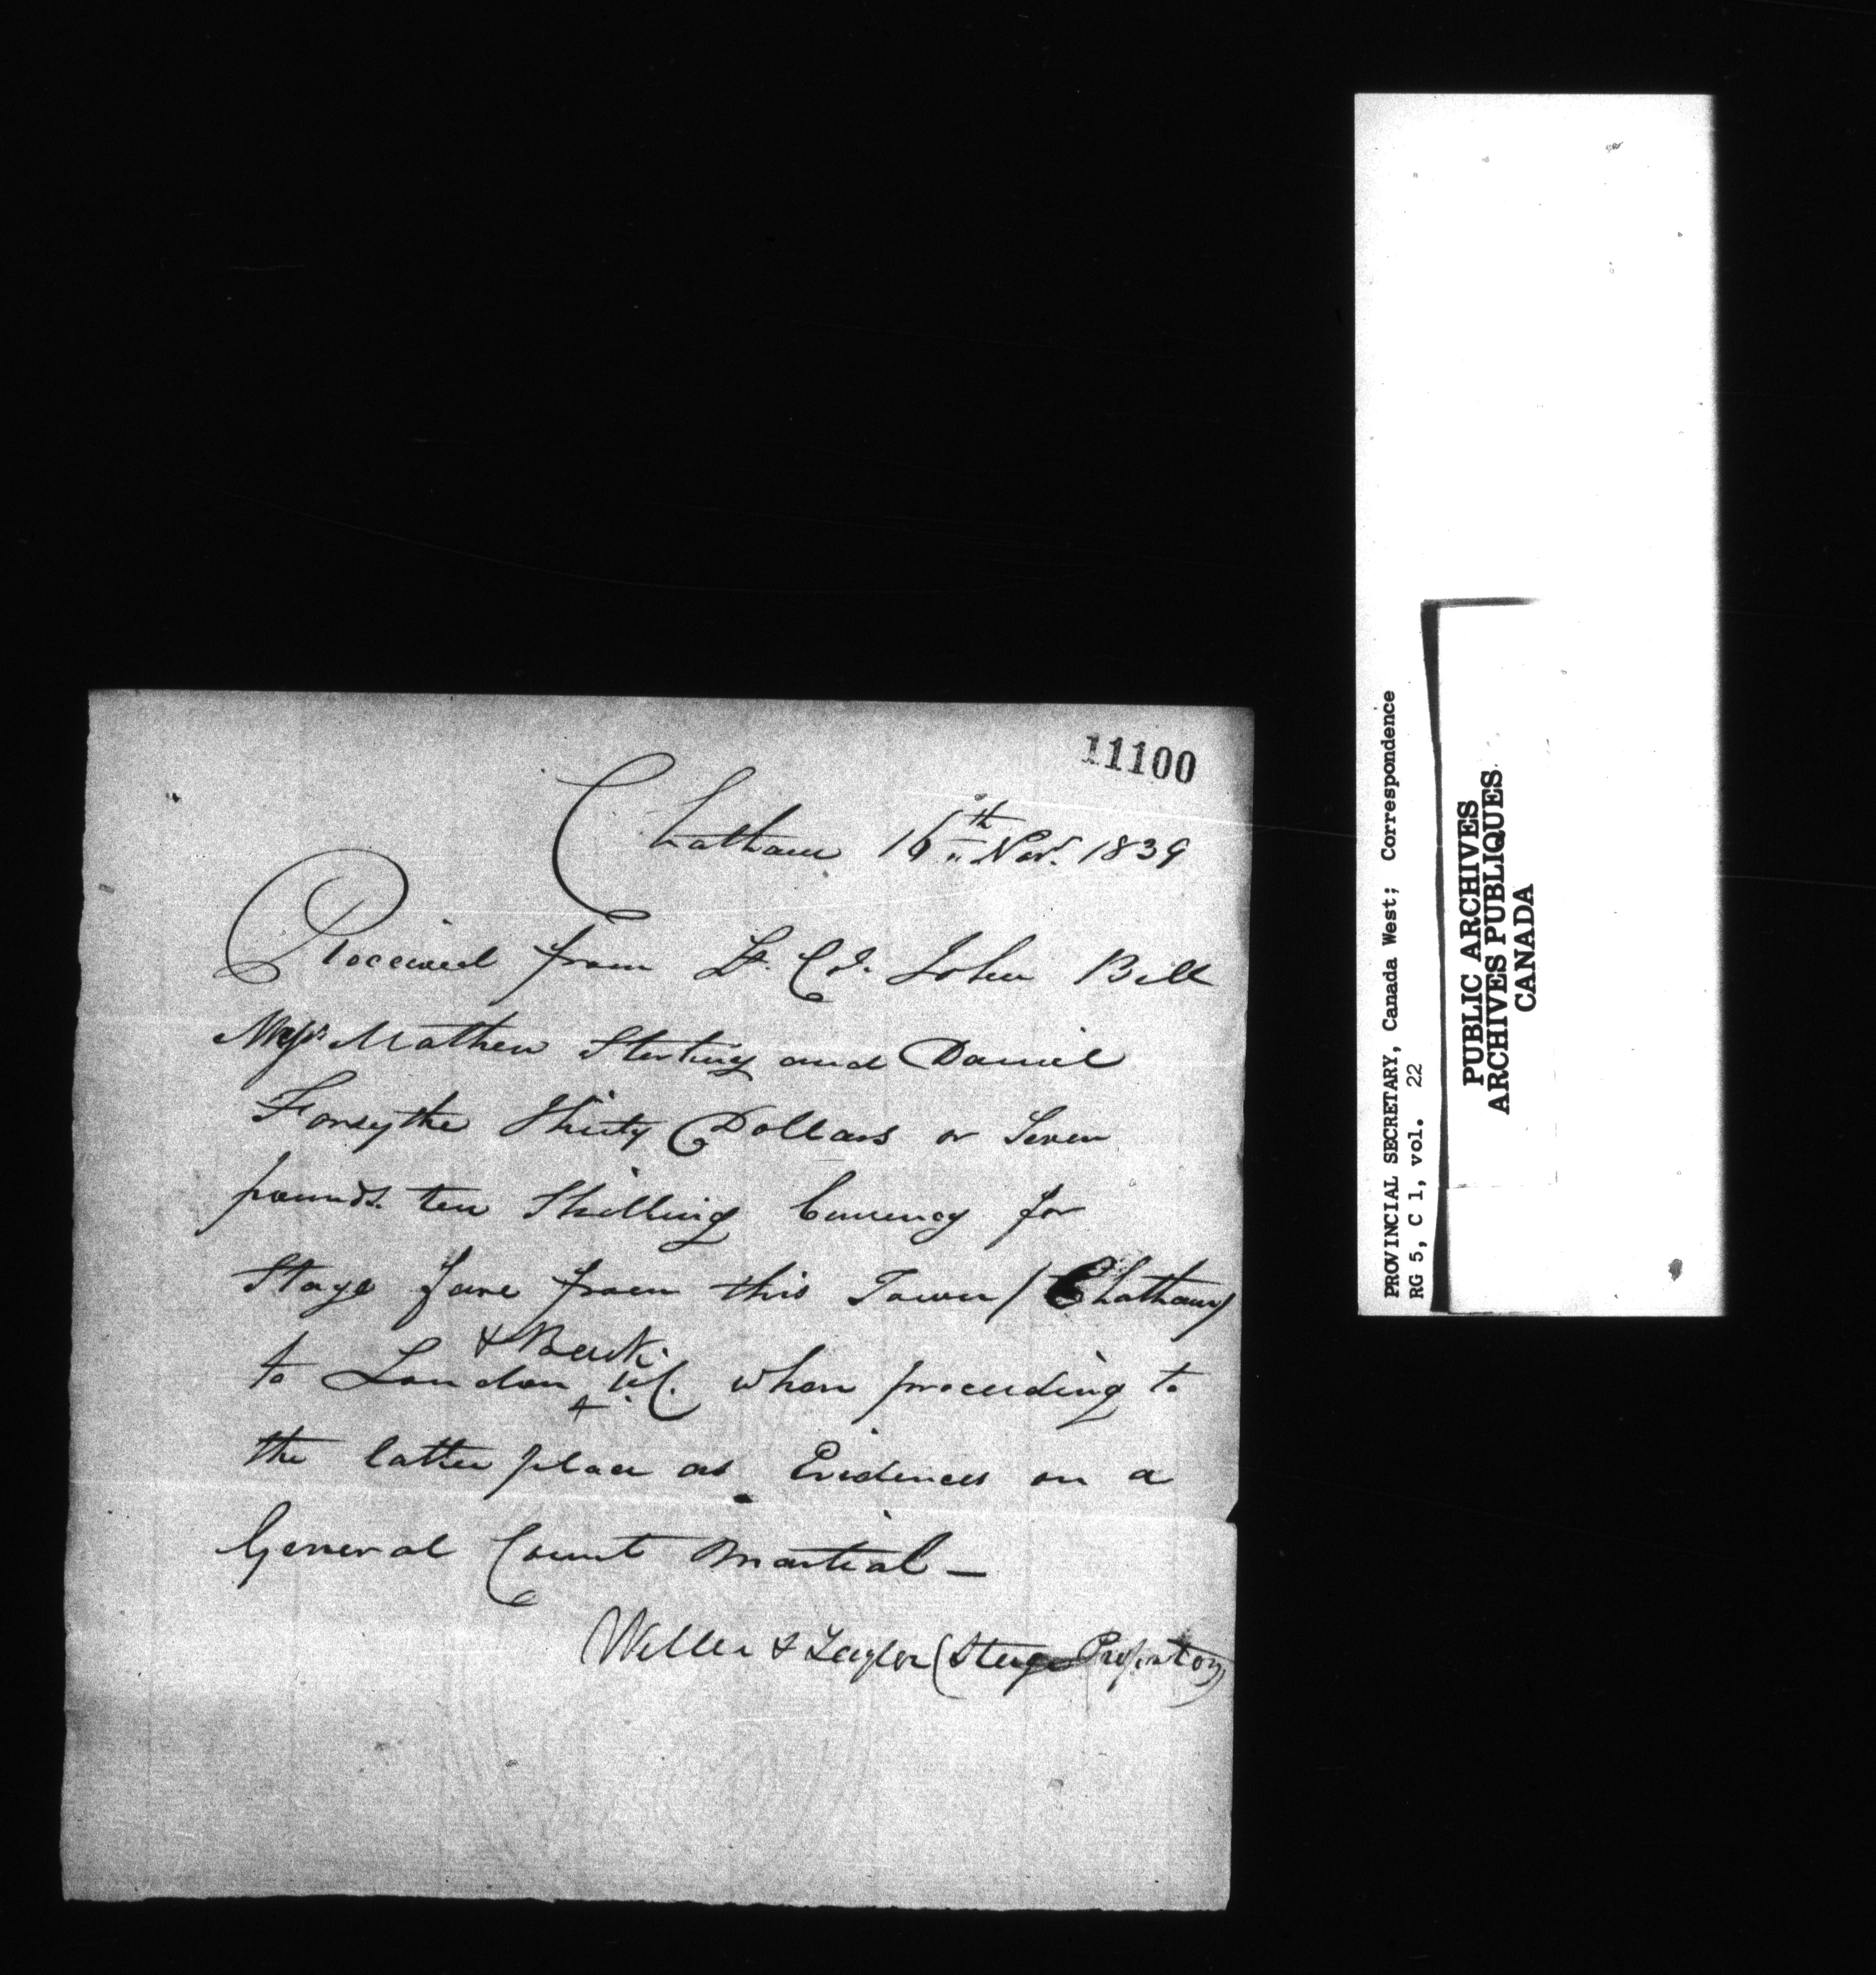 11100
Chatham 16th Nov. 1839
Received from Lt. Col. John Bell
Messrs Mathew Sterling and Daniel
Forsythe Thirty Dollars or Seven
pounds ten Shilling Currency for
Stage fare from this Town (Chatham)
& Back
to London U.C. when proceeding to
the latter place as Evidences on a
General Court Martial —
Weller & Taylor (Stage Proprietors)
PROVINCIAL SECRETARY, Canada West; Correspondence
RG 5, C 1, vol. 22
PUBLIC ARCHIVES
ARCHIVES PUBLIQUES
CANADA